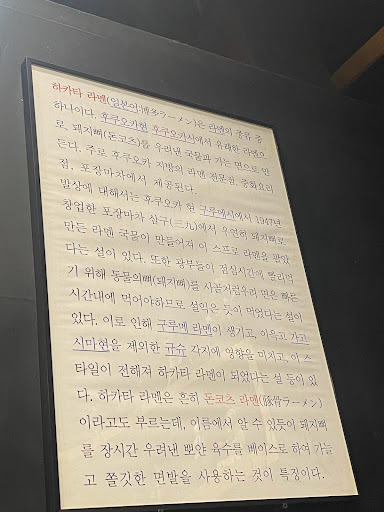 하카타 라멘(일본어:博多ラーメン)은 라멘의 종류 중
하나이다. 후쿠오카현 후쿠오카시에서 유래한 라멘으
로, 돼지뼈(돈코츠)를 우려낸 국물과 가는 면으로 만
든다. 주로 후쿠오카 지방의 라멘 전문점, 중화요리
점, 포장마차에서 제공된다.
발상에 대해서는 후쿠오카 현 구루메시에서 1947년
창업한 포장마차 산큐(三九)에서 우연히 돼지뼈로
만든 라멘 국물이 만들어져 이 스프로 라멘을 팔았
다는 설이 있다. 또한 광부들이 점심시간에 빨리먹
기 위해 동물의뼈(돼지뼈)를 사골처럼우려 면은 빠른
시간내에 먹어야하므로 설익은 듯이 먹었다는 설이
있다. 이로 인해 구루메 라멘이 생기고, 이윽고 가고
시마현을 제외한 규슈 각지에 영향을 미치고, 이 스
타일이 전해져 하카타 라멘이 되었다는 설 등이 있
다. 하카타 라멘은 흔히 돈코츠 라멘(豚骨ラーメン)
이라고도 부르는데, 이름에서 알 수 있듯이 돼지뼈
를 장시간 우려낸 뽀얀 육수를 베이스로 하여 가늘
고 쫄깃한 면발을 사용하는 것이 특징이다.